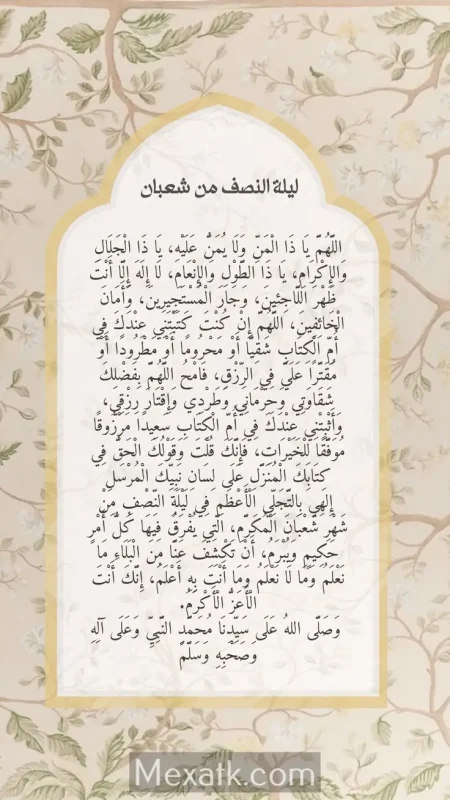 ليلة النصف من شعبان
اللَّهُمَّ يَا ذَا الْمَنِّ وَلَا يُمَنُّ عَلَيْهِ، يَا ذَا الْجَلَالِ
وَالإِكْرَامِ، يَا ذَا الطَّوْلِ وَالإِنْعَامِ، لَا إِلَهَ إِلَّا أَنْتَ
ظَهْرَ اللَّاجِئِينَ، وَجَارَ الْمُسْتَجِيرِينَ، وَأَمَانَ
الْخَائِفِينَ، اللَّهُمَّ إِنْ كُنْتَ كَتَبْتَنِي عِنْدَكَ فِي
أُمِّ الْكِتَابِ شَقِيًّا أَوْ مَحْرُومًا أَوْ مَطْرُودًا أَوْ
مُقَتَّرًا عَلَيَّ فِي الرِّزْقِ، فَامْحُ اللَّهُمَّ بِفَضْلِكَ
شَقَاوَتِي وَحِرْمَانِي وَطَرْدِي وَإِقْتَارَ رِزْقِي،
وَأَثْبِتْنِي عِنْدَكَ فِي أُمِّ الْكِتَابِ سَعِيدًا مَرْزُوقًا
مُوَفَّقًا لِلْخَيْرَاتِ، فَإِنَّكَ قُلْتَ وَقَوْلُكَ الْحَقُّ فِي
كِتَابِكَ الْمُنَزَّلِ عَلَى لِسَانِ نَبِيِّكَ الْمُرْسَلِ
إِلَهِي بِالتَّجَلِّي الْأَعْظَمِ فِي لَيْلَةِ النِّصْفِ مِنْ
شَهْرِ شَعْبَانَ الْمُكَرَّمِ، الَّتِي يُفْرَقُ فِيهَا كُلُّ أَمْرٍ
حَكِيمٍ وَيُبْرَمُ، أَنْ تَكْشِفَ عَنَّا مِنَ الْبَلَاءِ مَا
نَعْلَمُ وَمَا لَا نَعْلَمُ وَمَا أَنْتَ بِهِ أَعْلَمُ، إِنَّكَ أَنْتَ
الْأَعَزُّ الْأَكْرَمُ.
وَصَلَّى اللهُ عَلَى سَيِّدِنَا مُحَمَّدٍ النَّبِيِّ وَعَلَى آلِهِ
وَصَحْبِهِ وَسَلَّمَ
Mexatk.com